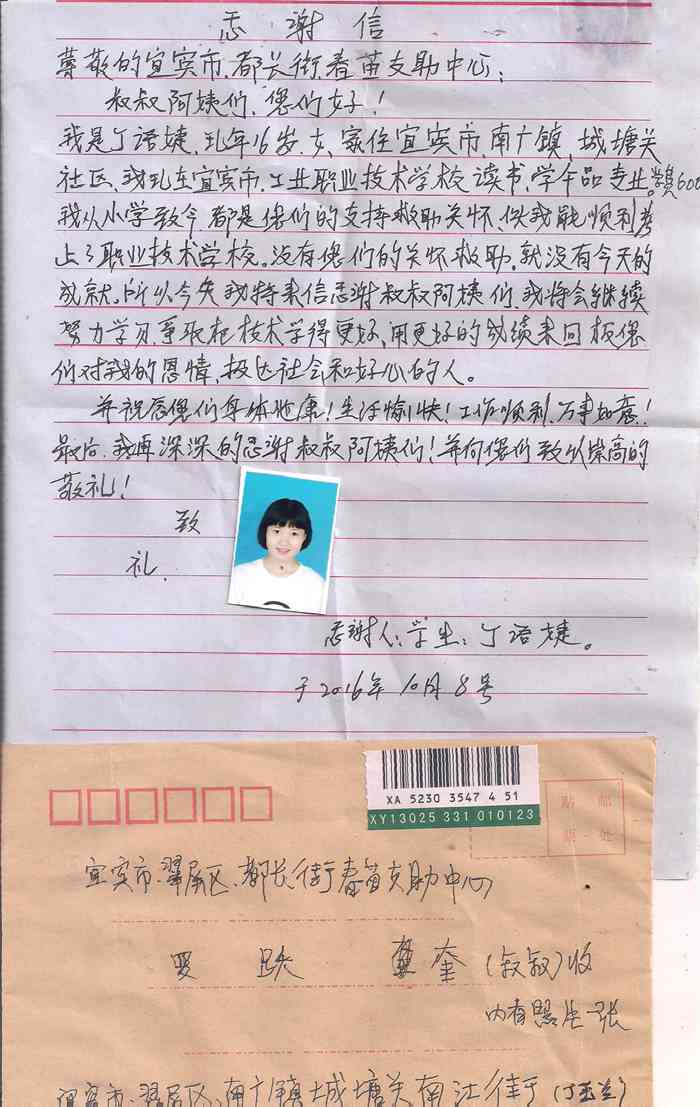 感谢信
尊敬的宜宾市、都长街春苗支助中心:
叔叔阿姨们、您们好!
我是丁语婕、现年16岁、女、家住宜宾市、南广镇、城塘关
社区、我现在宜宾市、工业职业技术学校读书、学
我从小学致今、都是您们的支持救助关怀、供我能顺利考
上了职业技术学校。没有您们的关怀救助、就没有今天的
成就。所以今天我特来信感谢叔叔阿姨们、我将会继续
努力学习、争取把技术学得更好、用更好的成绩来回报您
们对我的恩情、报达社会和好心的人。
并祝愿您们身体健康!生活愉快!工作顺利、万事如意!
最后、我再深深的感谢叔叔阿姨们!并向您们致以崇高的
敬礼!
致
礼.
感谢人:学生:丁语婕。
于2016年10月8号
XA 5230 3547 4 51
XY13025 331 010123
贴 邮
票 处
宜宾市、翠屏区、都长街春苗支助中心
奎(叔叔)收
内有照片一张
宜宾市、翠屏区、南广镇城塘关南江街